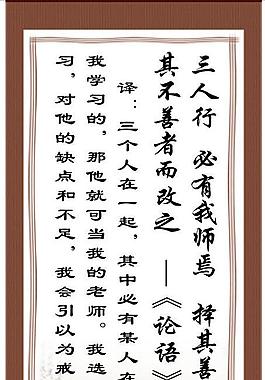 三人行 必有我师焉 择其善
其不善者而改之 —《论语》
译：三个人在一起，其中必有某人在
我学习的，那他就可当我的老师。我选
习，对他的缺点和不足，我会引以为戒